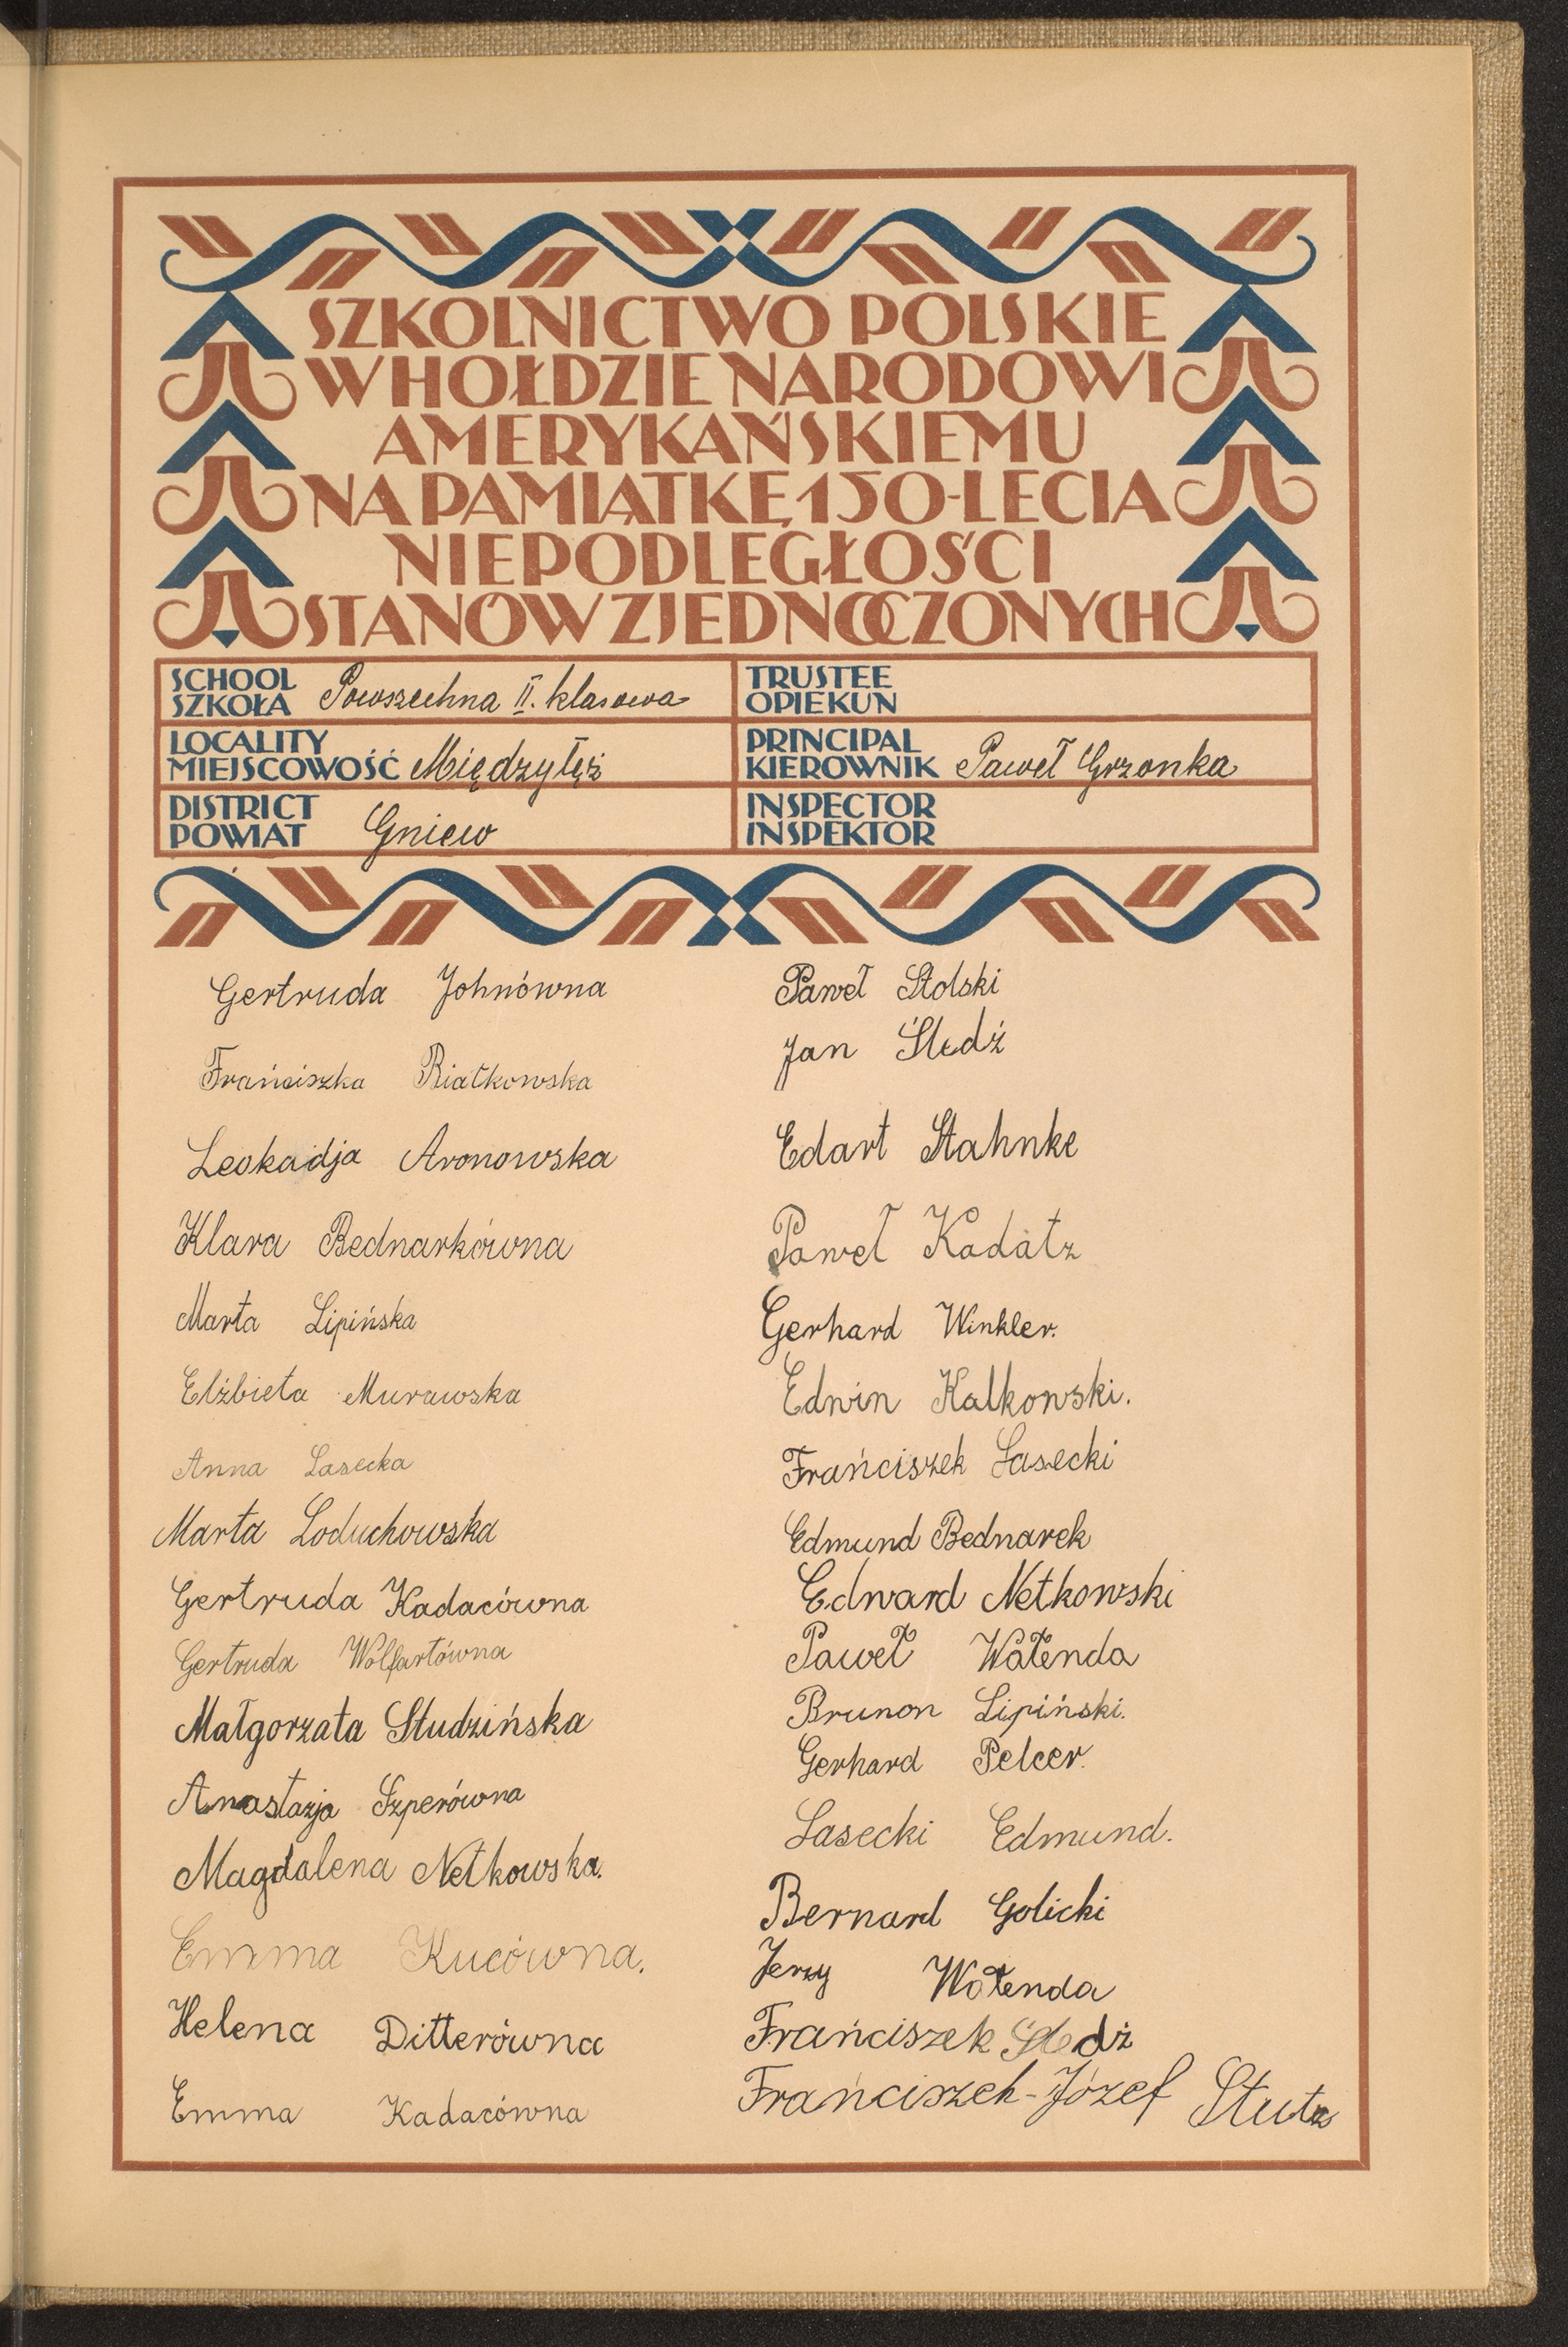 SZKOLNICTWO POLSKIE
W HOŁDZIE NARODOWI
AMERYKAŃSKIEMU
NA PAMIĄTKĘ 150-LECIA
NIEPODLEGŁOŚCI
STANÓW ZJEDNOCZONYCH
SCHOOL
SZKOŁA Powszechna II. klasowa
TRUSTEE
OPIEKUN
LOCALITY
MIEJSCOWOŚĆ Międzyłęż
PRINCIPAL
KIEROWNIK Paweł Grzonka
DISTRICT
POWIAT Gniew
INSPECTOR
INSPEKTOR
Gertruda Johnówna
Frańciszka Białkowska
Leokadja Aronowska
Klara Bednarkówna
Marta Lipińska
Elżbieta Murawska
Anna Lasecka
Marta Loduchowska
Gertruda Kadacówna
Gertruda Wolfartówna
Małgorzata Studzińska
Anastazja Szperówna
Magdalena Netkowska.
Emma Kucówna.
Helena Ditterówna
Emma Kadacówna
Paweł Stolski
Jan Śledź
Edart Stahnke
Paweł Kadatz
Gerhard Winkler.
Edwin Kalkowski.
Frańciszek Lasecki
Edmund Bednarek
Edward Netkowski
Paweł Wałenda
Brunon Lipiński.
Gerhard Pelcer.
Lasecki Edmund.
Bernard Golicki
Jerzy Wałenda
Frańciszek Śledż
Frańciszek-Józef Stutz